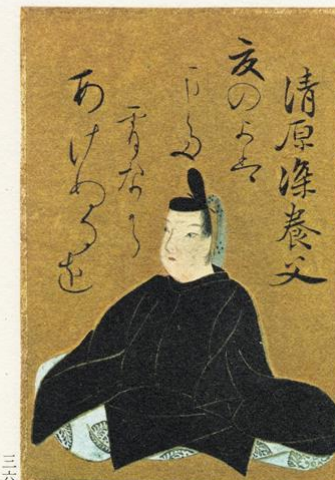 清原深養父
夏のよは
また
宵なから
あけぬるを
三六